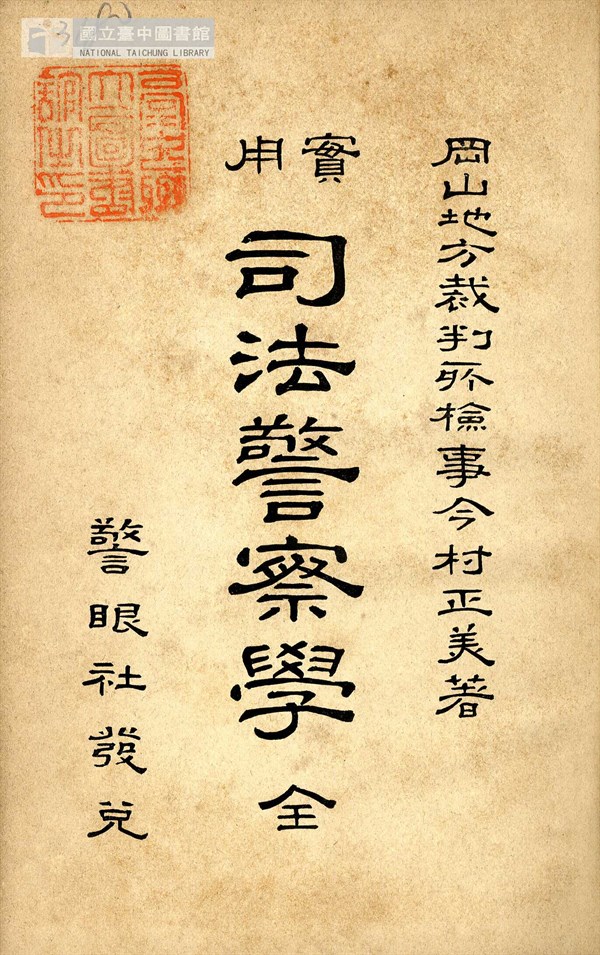 國立臺中圖書館
NATIONAL TAICHUNG LIBRARY
岡山地方裁判所檢事今村正美著
實用
司法警察學 全
警眼社發兌